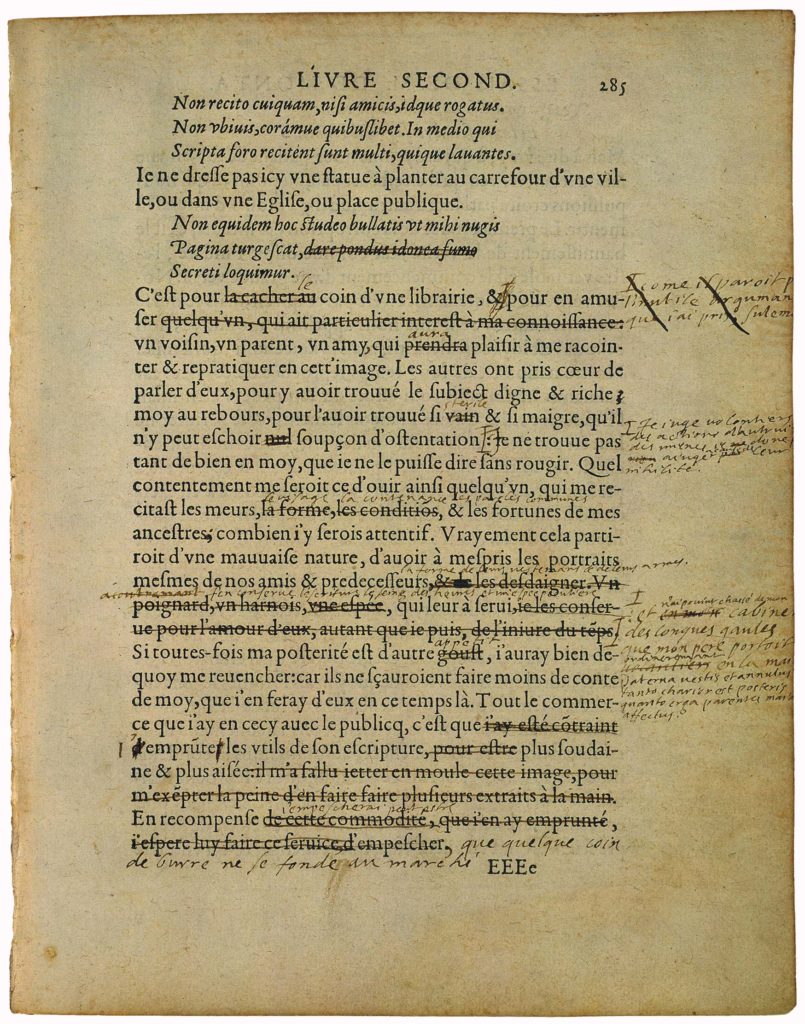 LIVRE SECOND. 285
Non recito cuiquam, nisi amicis, idque rogatus.
Non vbiuis, corámue quibuslibet. In medio qui
Scripta foro recitent sunt multi, quique lauantes.
Ie ne dresse pas icy vne statue à planter au carrefour d'vne vil-
le, ou dans vne Eglise, ou place publique.
Non equidem hoc studeo bullatis vt mihi nugis
Pagina turgescat, dare pondus idonea fumo
Secreti loquimur.
le
C'est pour la cacher au coin d'vne librairie, & pour en amu-
ser quelqu'vn, qui ait particulier interest à ma connoissance:
aura
vn voisin, vn parent, vn amy, qui prendra plaisir à me racoin-
ter & repratiquer en cett'image. Les autres ont pris cœur de
parler d'eux, pour y auoir trouué le subiect digne & riche;
sterile
moy au rebours, pour l'auoir trouué si vain & si maigre, qu'il
n'y peut eschoir nul soupçon d'ostentation. Ie ne trouue pas
Ie iuge volontiers
des actions d'autrui
des mienes ie done
nihilité
tant de bien en moy, que ie ne le puisse dire sans rougir. Quel
contentement me seroit ce d'ouir ainsi quelqu'vn, qui me re-
le visage la contenance les paroles communes
citast les meurs, la forme, les conditiõs, & les fortunes de mes
ancestres; combien i'y serois attentif. Vrayement cela parti-
roit d'vne mauuaise nature, d'auoir à mespris les portraits
la forme de leurs vestemans de leurs armes.
mesmes de nos amis & predecesseurs, & de les desdaigner. Vn
poignard, vn harnois, vne espee, qui leur à serui, ie les conser-
ue pour l'amour d'eux, autant que ie puis, de l'iniure du tẽps.
cabinet
des longues gaules
que mon pere portoit
en la main
Paterna vestis et annulus
tanto charior est posteris
quanto erga parentes maior
affectus
appetit
Si toutes-fois ma posterité est d'autre goust, i'auray bien de-
quoy me reuencher: car ils ne sçauroient faire moins de conte
de moy, que i'en feray d'eux en ce temps là. Tout le commer-
ce que i'ay en cecy auec le publicq, c'est que i'ay esté cõtraint
d'emprũter les vtils de son escripture, pour estre plus soudai-
ne & plus aisée: il m'a fallu ietter en moule cette image, pour
m'exẽpter la peine d'en faire faire plusieurs extraits à la main.
En recompense de cette commodité, que i'en ay emprunté,
i'espere luy faire ce seruice, d'empescher, que quelque coin
de burre ne se fonde au marché
EEEe